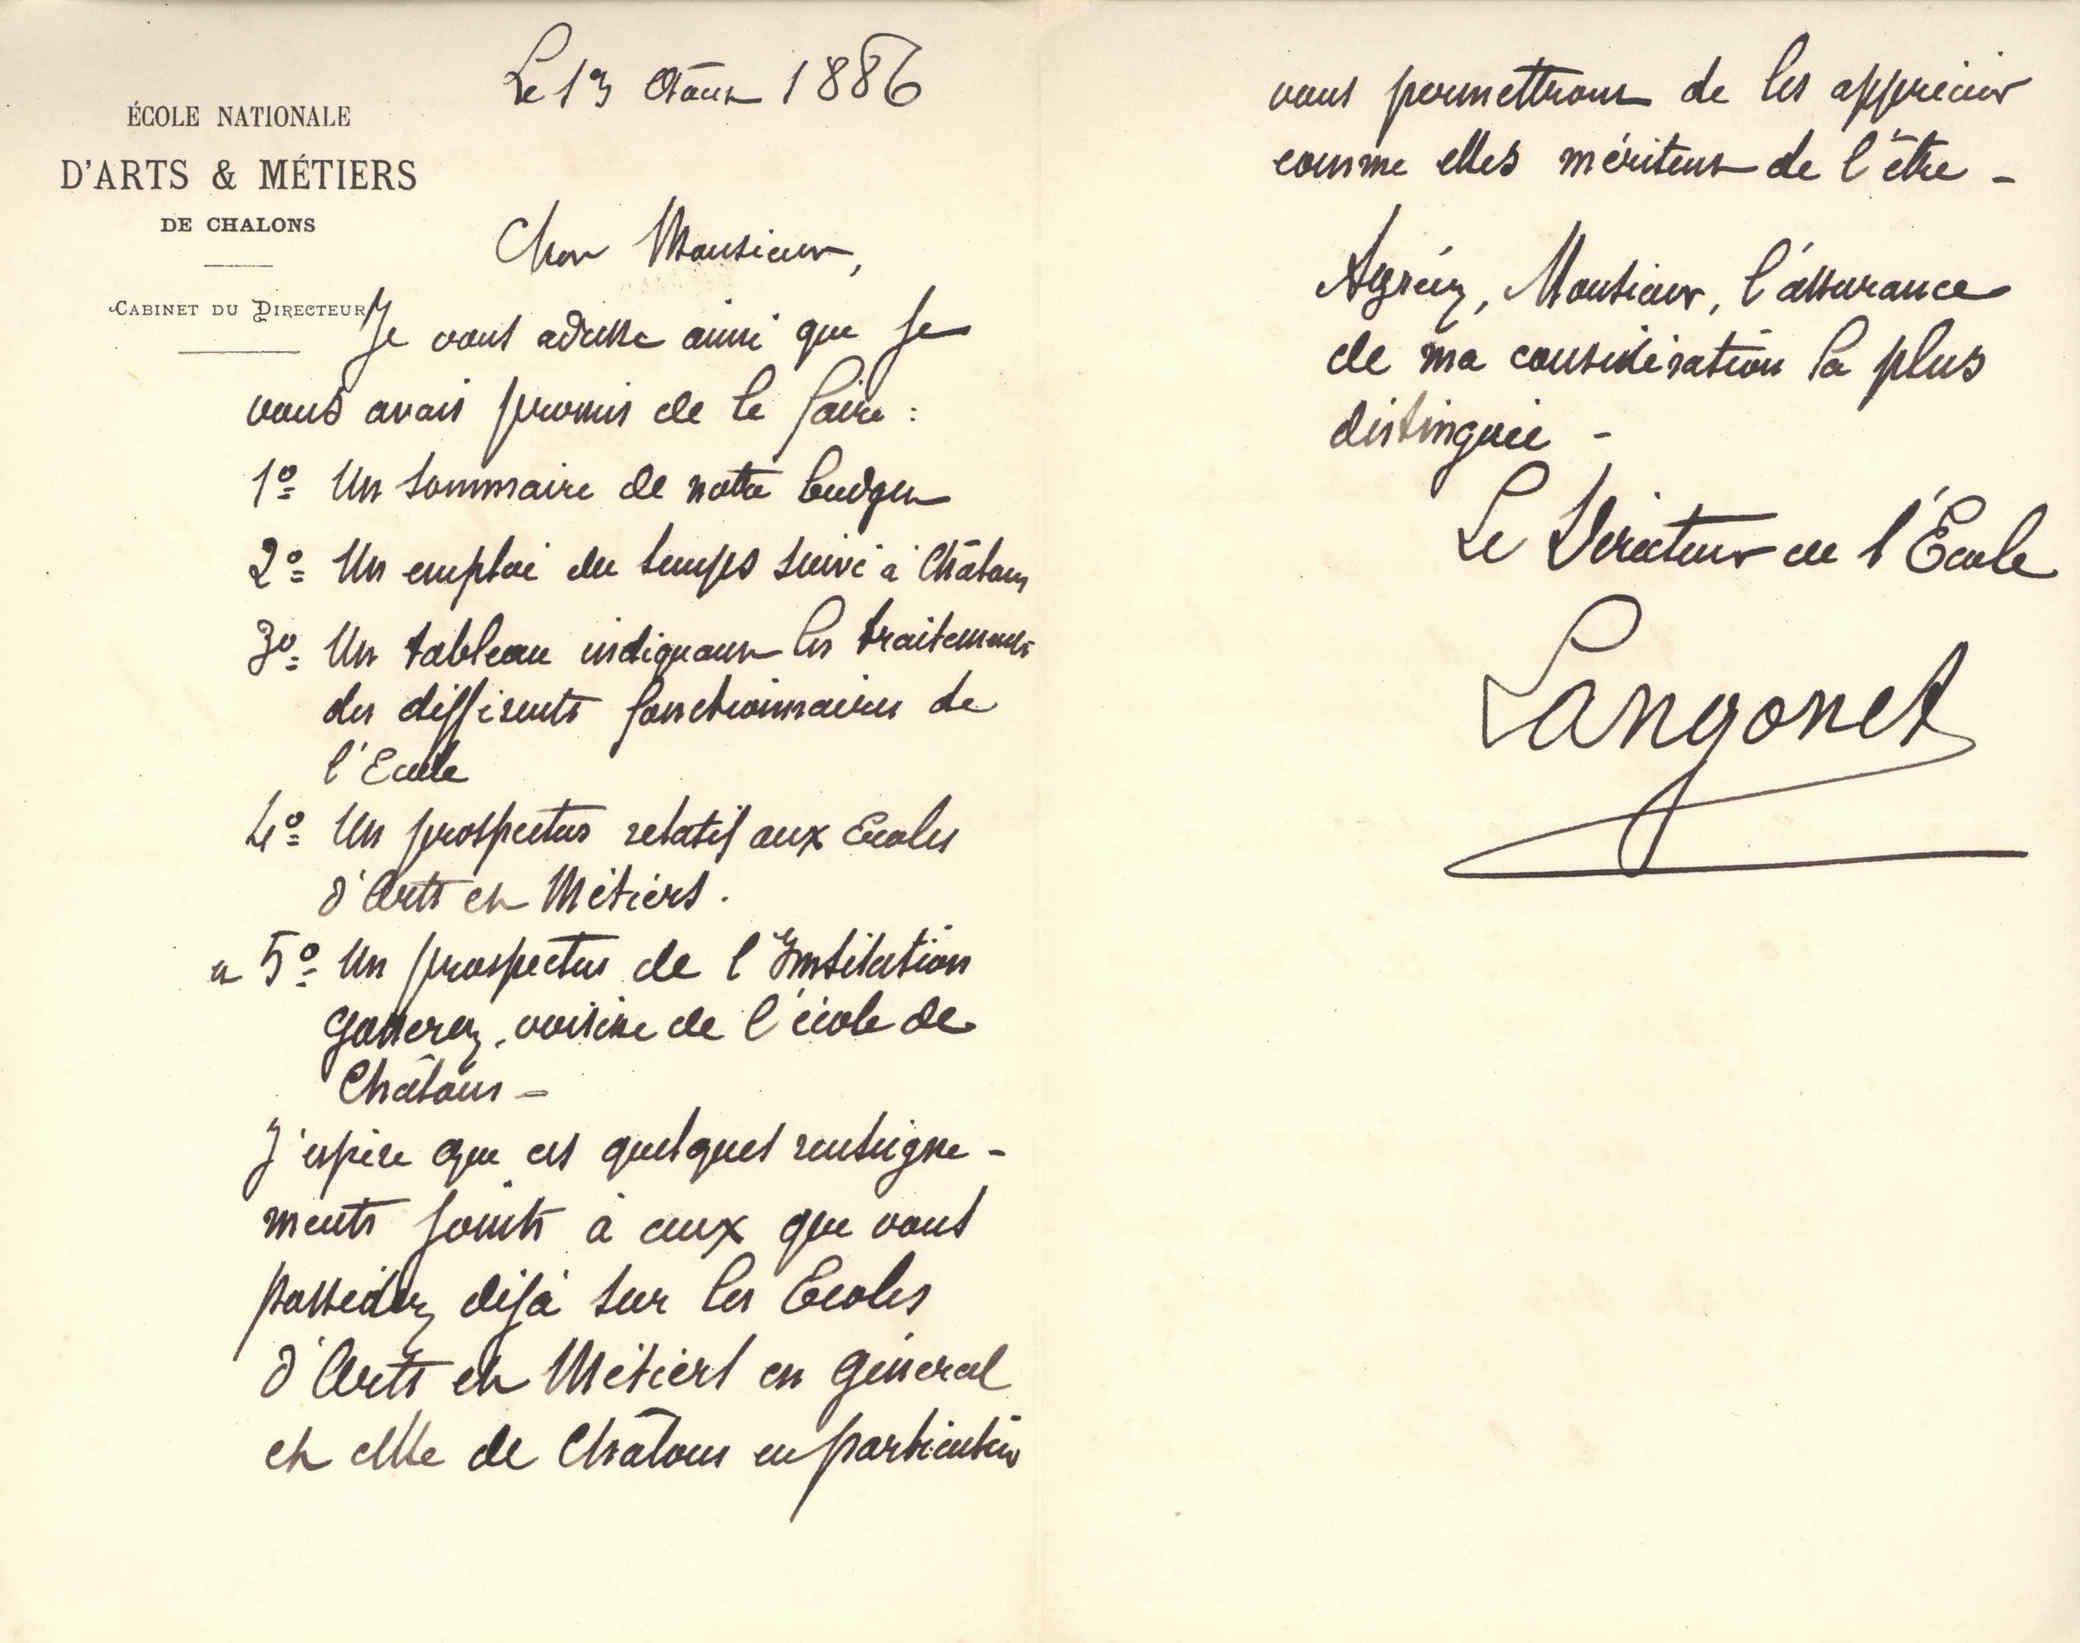 Le 13 Août 1886
ÉCOLE NATIONALE
D'ARTS & MÉTIERS
DE CHALONS
CABINET DU DIRECTEUR
Cher Monsieur,
Je vous adresse ainsi que je
vous avais promis de le faire :
1º Un sommaire de notre budget
2º Un emploi du temps suivi à Châlons
3º Un tableau indiquant les traitements
des différents fonctionnaires de
l'Ecole
4º Un prospectus relatif aux Ecoles
d'Arts et Métiers.
et 5º Un prospectus de l'Institution
voisine de l'école de
Châlons –
J'espère que ces quelques renseigne-
ments joints à ceux que vous
possédez déjà sur les Ecoles
d'Arts et Métiers en général
et celle de Châlons en particulier
vous permettront de les apprécier
comme elles méritent de l'être –
Agréez, Monsieur, l'assurance
de ma considération la plus
distinguée –
Le Directeur de l'École
Langonet